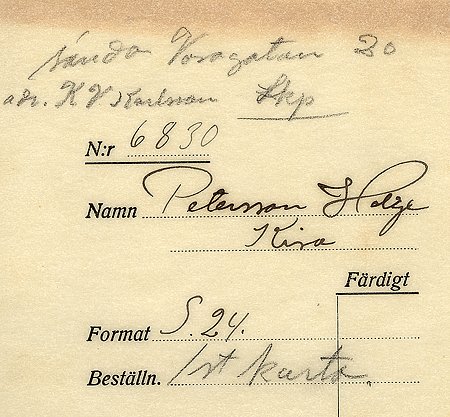 sända Vasagatan 20
adr. K V Karlsson Lkp
N:r 6830
Namn Petersson Helge
Kisa
Färdigt
Format S. 24.
Beställn. 1 st karta.